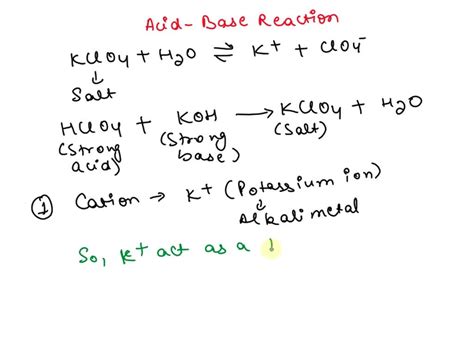 Acid-Base Reaction
KClO4 + H2O ⇌ K+ + ClO4-
↓
Salt
HClO4 + KOH → KClO4 + H2O
(Strong acid) (Strong base) (Salt)
① Cation → K+ (Potassium ion)
↓
Alkali metal
So, K+ act as a